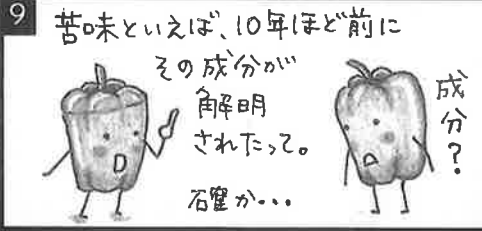 9
苦味といえば、10年ほど前に
その成分が
解明
されたって。
確か・・・
成分？